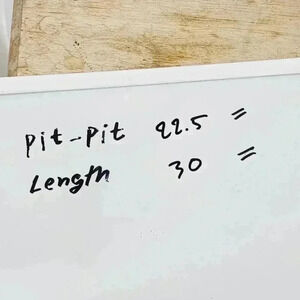 Pit-Pit 22.5 "
Length 30 "